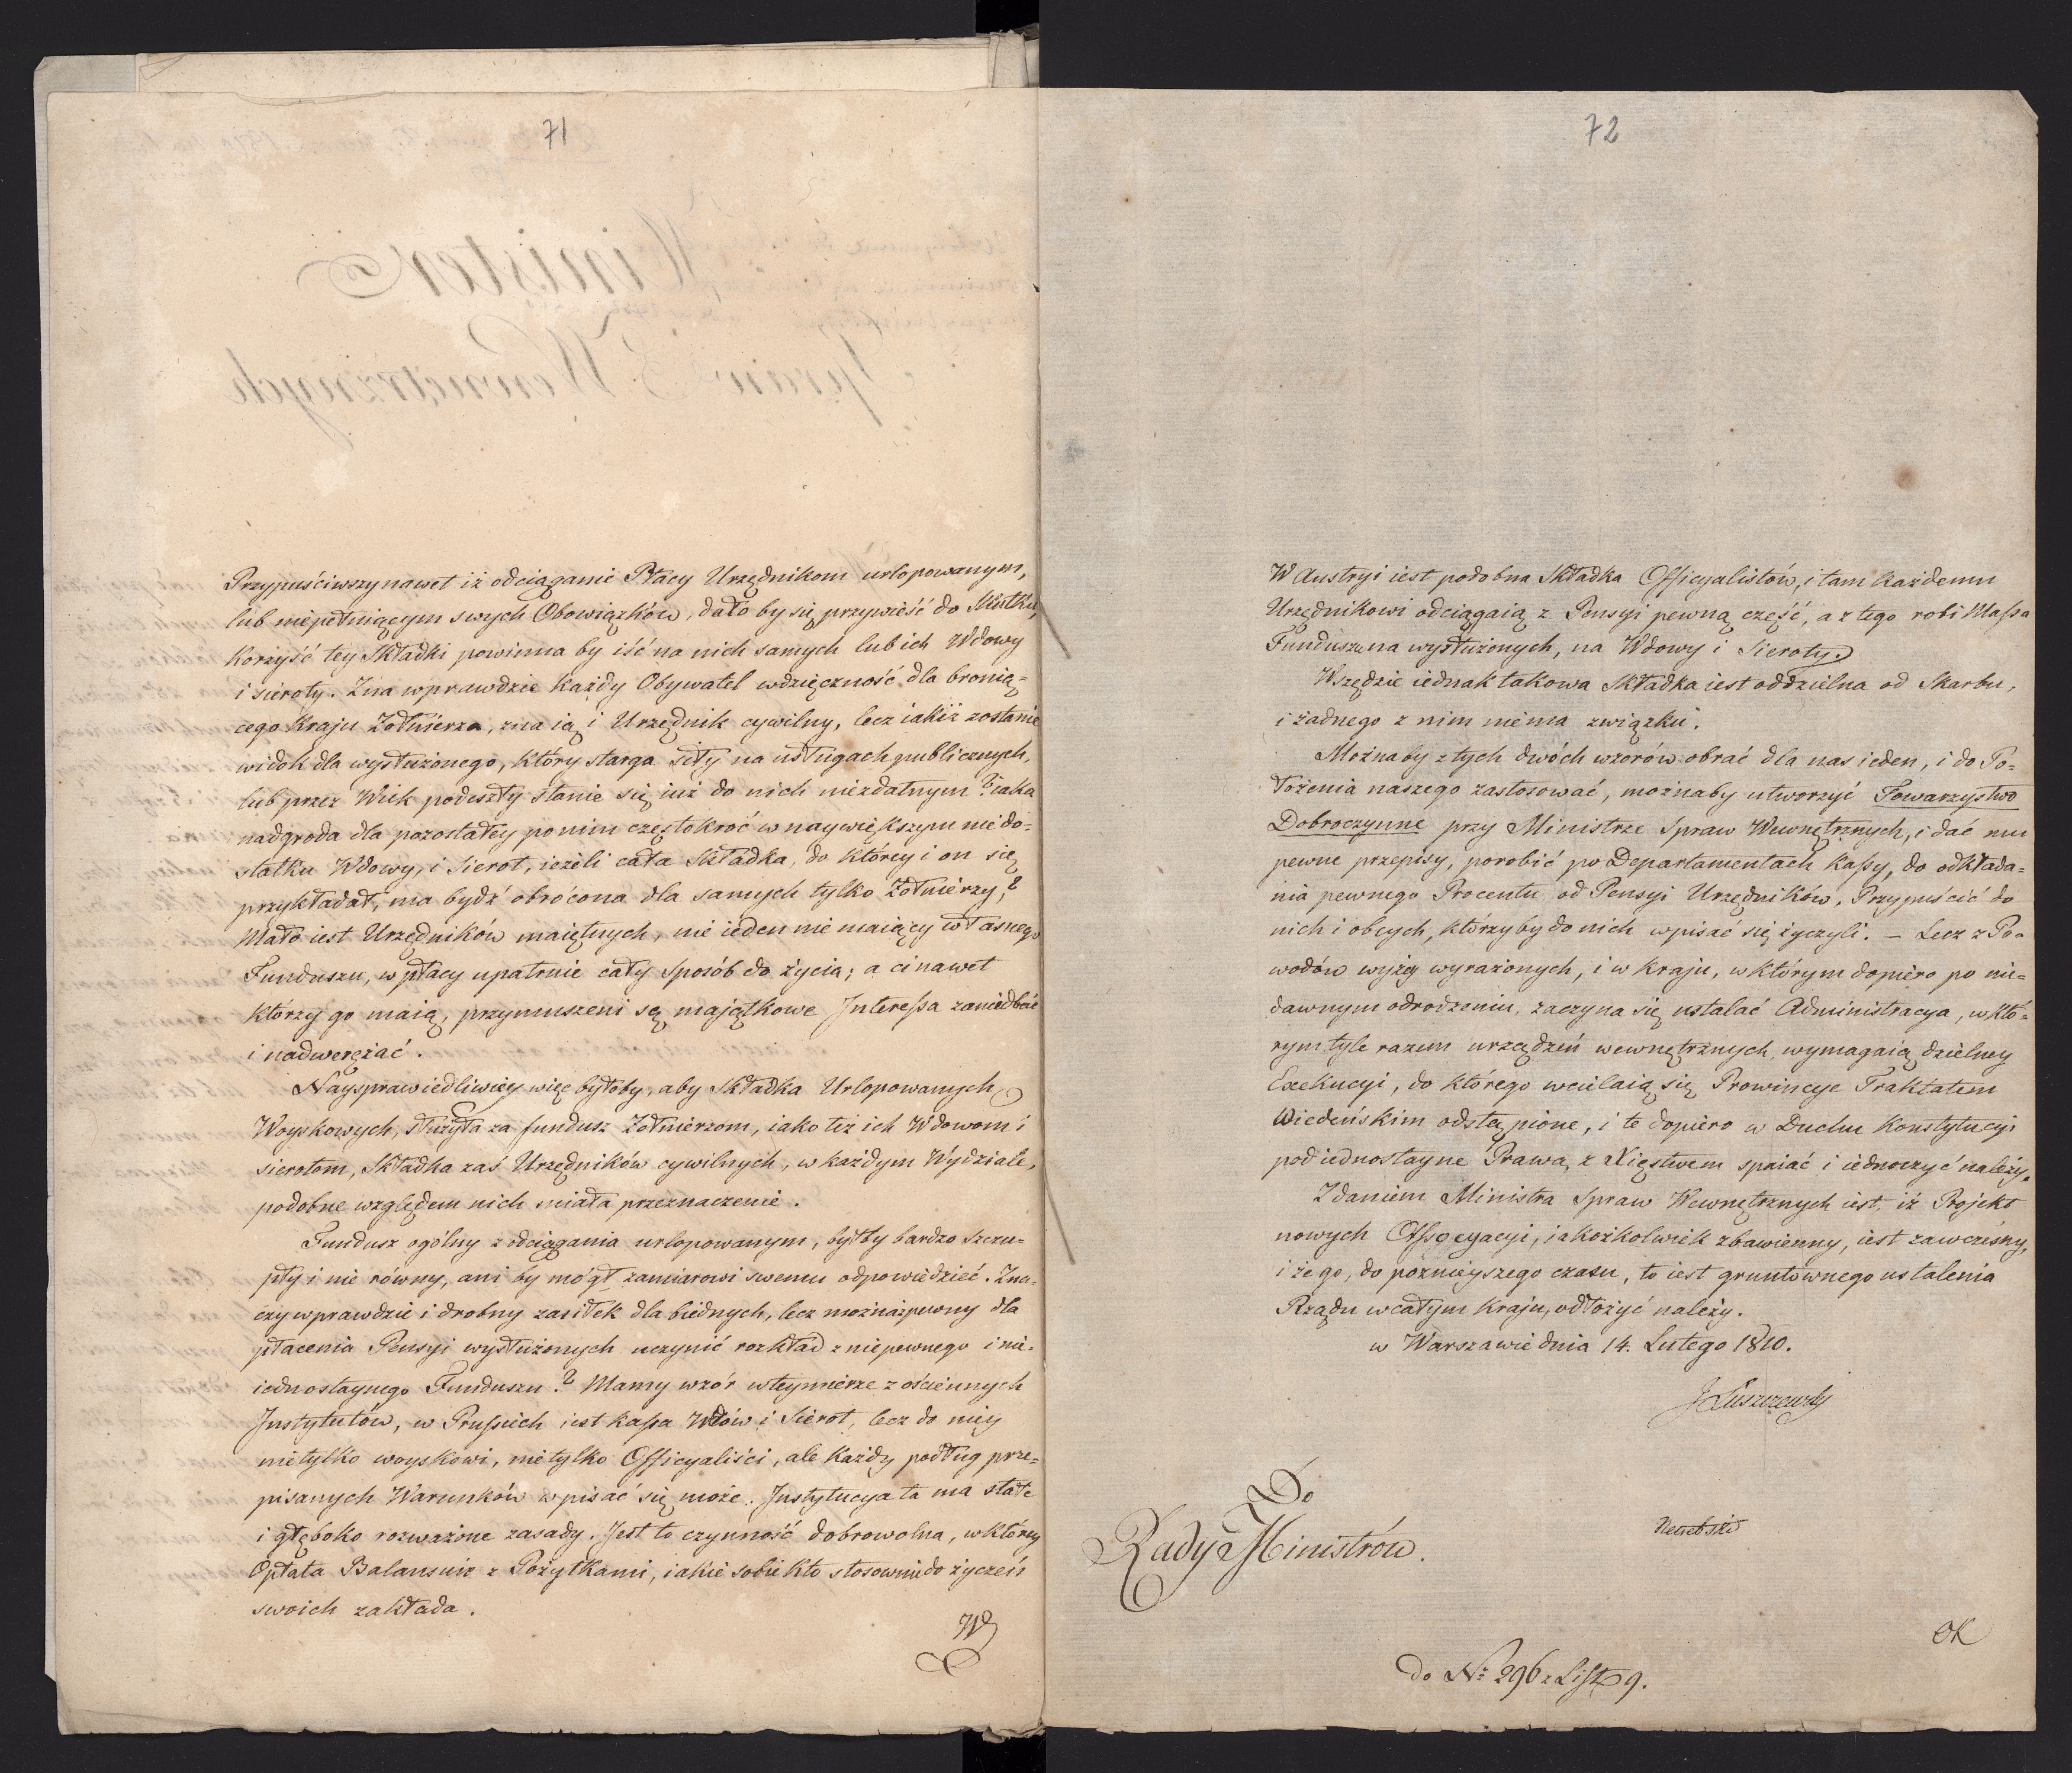 71
Przypuściwszy nawet iż odciąganie Płacy Urzędnikom urlopowanym,
lub niepełniącym swych Obowiązków, dało by się przywieść do Skutku,
Korzyść tey Składki powinna by iść na nich samych lub ich Wdowy
i sieroty. Zna wprawdzie każdy Obywatel wdzięczność dla bronią=
cego Kraju Żołnierza, zna ią i Urzędnik cywilny, lecz iakiż zostanie
widok dla wysłużonego, który starga siły na usługach publicznych,
lub przez Wiek podeszły stanie się iuż do nich niezdatnym? iaka
nadgroda dla pozostałey po nim częstokroć w naywiększym niedo=
statku Wdowy, i Sierot, ieżeli cała Składka, do którey i on się
przykładał, ma bydź obrócona dla samych tylko Żołnierzy?
Mało iest Urzędników maiętnych, nie ieden nie maiący własnego
Funduszu, w płacy upatruie cały Sposób do życia; a ci nawet
którzy go maią, przymuszeni są majątkowe Interessa zaniedbać
i nadweręźać.
Naysprawiedliwiey więc byłoby, aby Składka Urlopowanych
Woyskowych, służyła za fundusz Żołnierzom, iako też ich Wdowom i
sierotom, Składka zaś Urzędników cywilnych, w każdym Wydziale,
podobne względem nich miała przeznaczenie.
Fundusz ogólny z odciągania urlopowanym, byłby bardzo szczu=
pły i nie równy, ani by mógł zamiarowi swemu odpowiedzieć. Zna=
czy wprawdzie i drobny zasiłek dla biednych, lecz możnaż pewny dla
płacenia Pensyi wysłużonych uczynić rozkład z niepewnego i nie=
iednostaynego Funduszu? Mamy wzór w teymierze z ościennych
Instytutów, w Prussiech iest kassa Wdów i Sierot, lecz do niey
nietylko woyskowi, nietylko Officyaliści, ale każdy podług prze=
pisanych Warunków wpisać się może. Instytucya ta ma stałe
i głęboko rozważne zasady. Jest to czynność dobrowolna, w którey
Opłata Balansuie z Pożytkami, iakie sobie kto stosownie do życzeń
swoich zakłada.
W
72
W Austryi iest podobna Składka Officyalistów, i tam każdemu
Urzędnikowi odciągaią z Pensyi pewną część, a z tego robi Massa
Funduszu na wysłużonych, na Wdowy i Sieroty.
Wszędzie iednak takowa Składka iest oddzielna od Skarbu,
i żadnego z nim niema związku.
Możnaby z tych dwóch wzorów obrać dla nas ieden, i do Po=
łożenia naszego zastosować, możnaby utworzyć Towarzystwo
Dobroczynne przy Ministrze Spraw Wewnętrznych, i dać mu
pewne przepisy, porobić po Departamentach kassy, do odkłada=
nia pewnego Procentu od Pensyi Urzędników, Przypuścić do
nich i obcych, którzyby do nich wpisać się życzyli. – Lecz z Po=
wodów wyżey wyrażonych, i w Kraju, w którym dopiero po nie=
dawnym odrodzeniu, zaczyna się ustalać Administracya, w któ=
rym tyle razem urządzeń wewnętrznych wymagaią dzielney
Exekucyi, do którego wcielaią się Prowincye Traktatem
Wiedeńskim odstąpione, i te dopiero w Duchu Konstytucyi
pod iednostayne Prawa, z Xięstwem spaiać i iednoczyć należy.
Zdaniem Ministra Spraw Wewnętrznych iest, iż Projekt
nowych Assocyacyi, iakożkolwiek zbawienny, iest zawczesny,
i że go, do poznieyszego czasu, to iest gruntownego ustalenia
Rządu w całym Kraju, odłożyć należy.
w Warszawie dnia 14. Lutego 1810.
JŁuszczewski
Do
Rady Ministrów.
do Nr 296 z List 9.